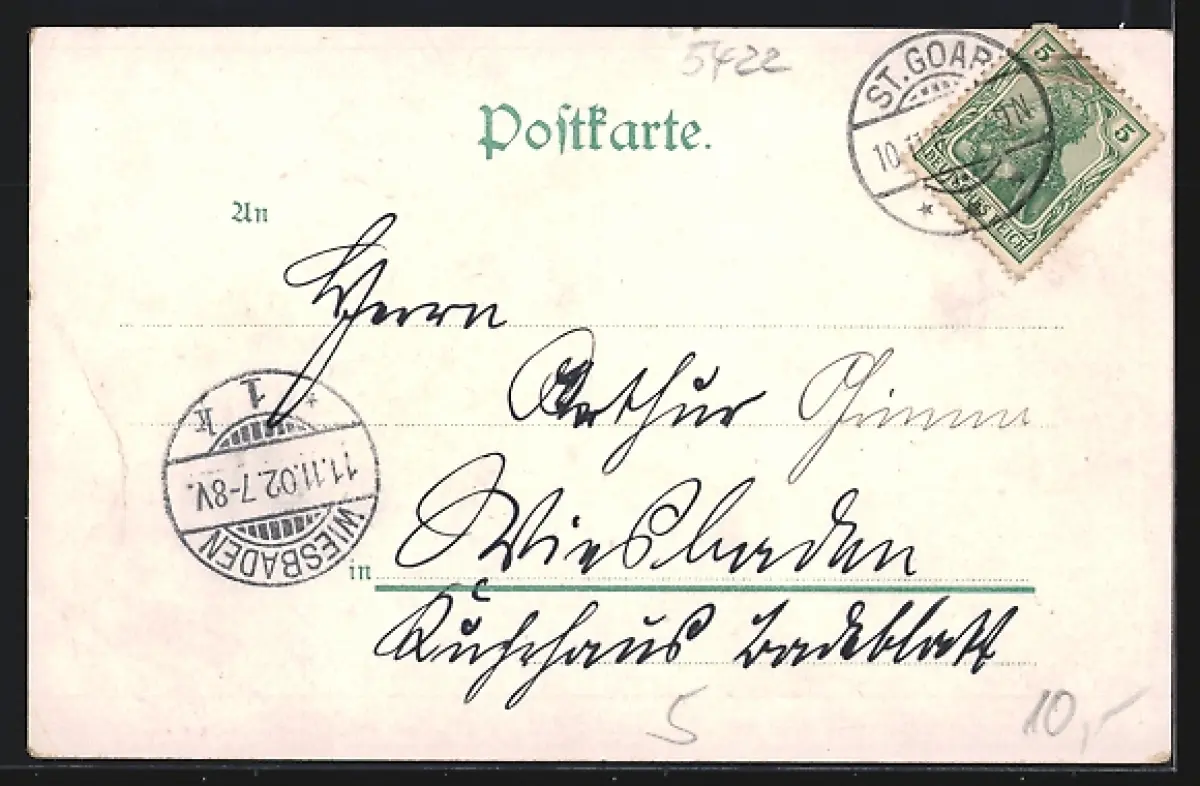 5422
Postkarte.
ST. GOAR
10.11. 9N
5 5
DEUTSCHES REICH
An
Herrn
Arthur Grimm
1 k
11.11.02.7-8V.
WIESBADEN
in Wiesbaden
Kurhaus Badeblatt
5
10,-